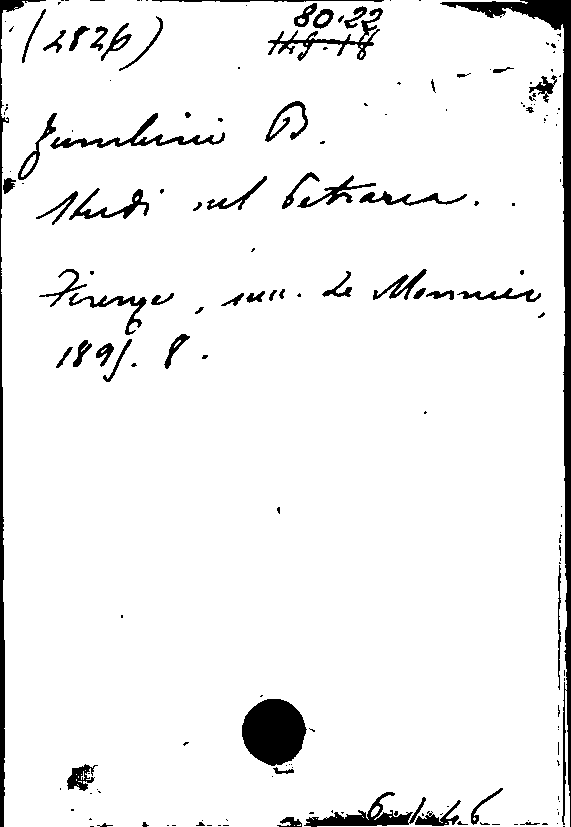 (2826) 80.22
149.18
Zumbini B.
Studi sul Petrarca.
Firenze, succ. Le Monnier,
1895. 8.